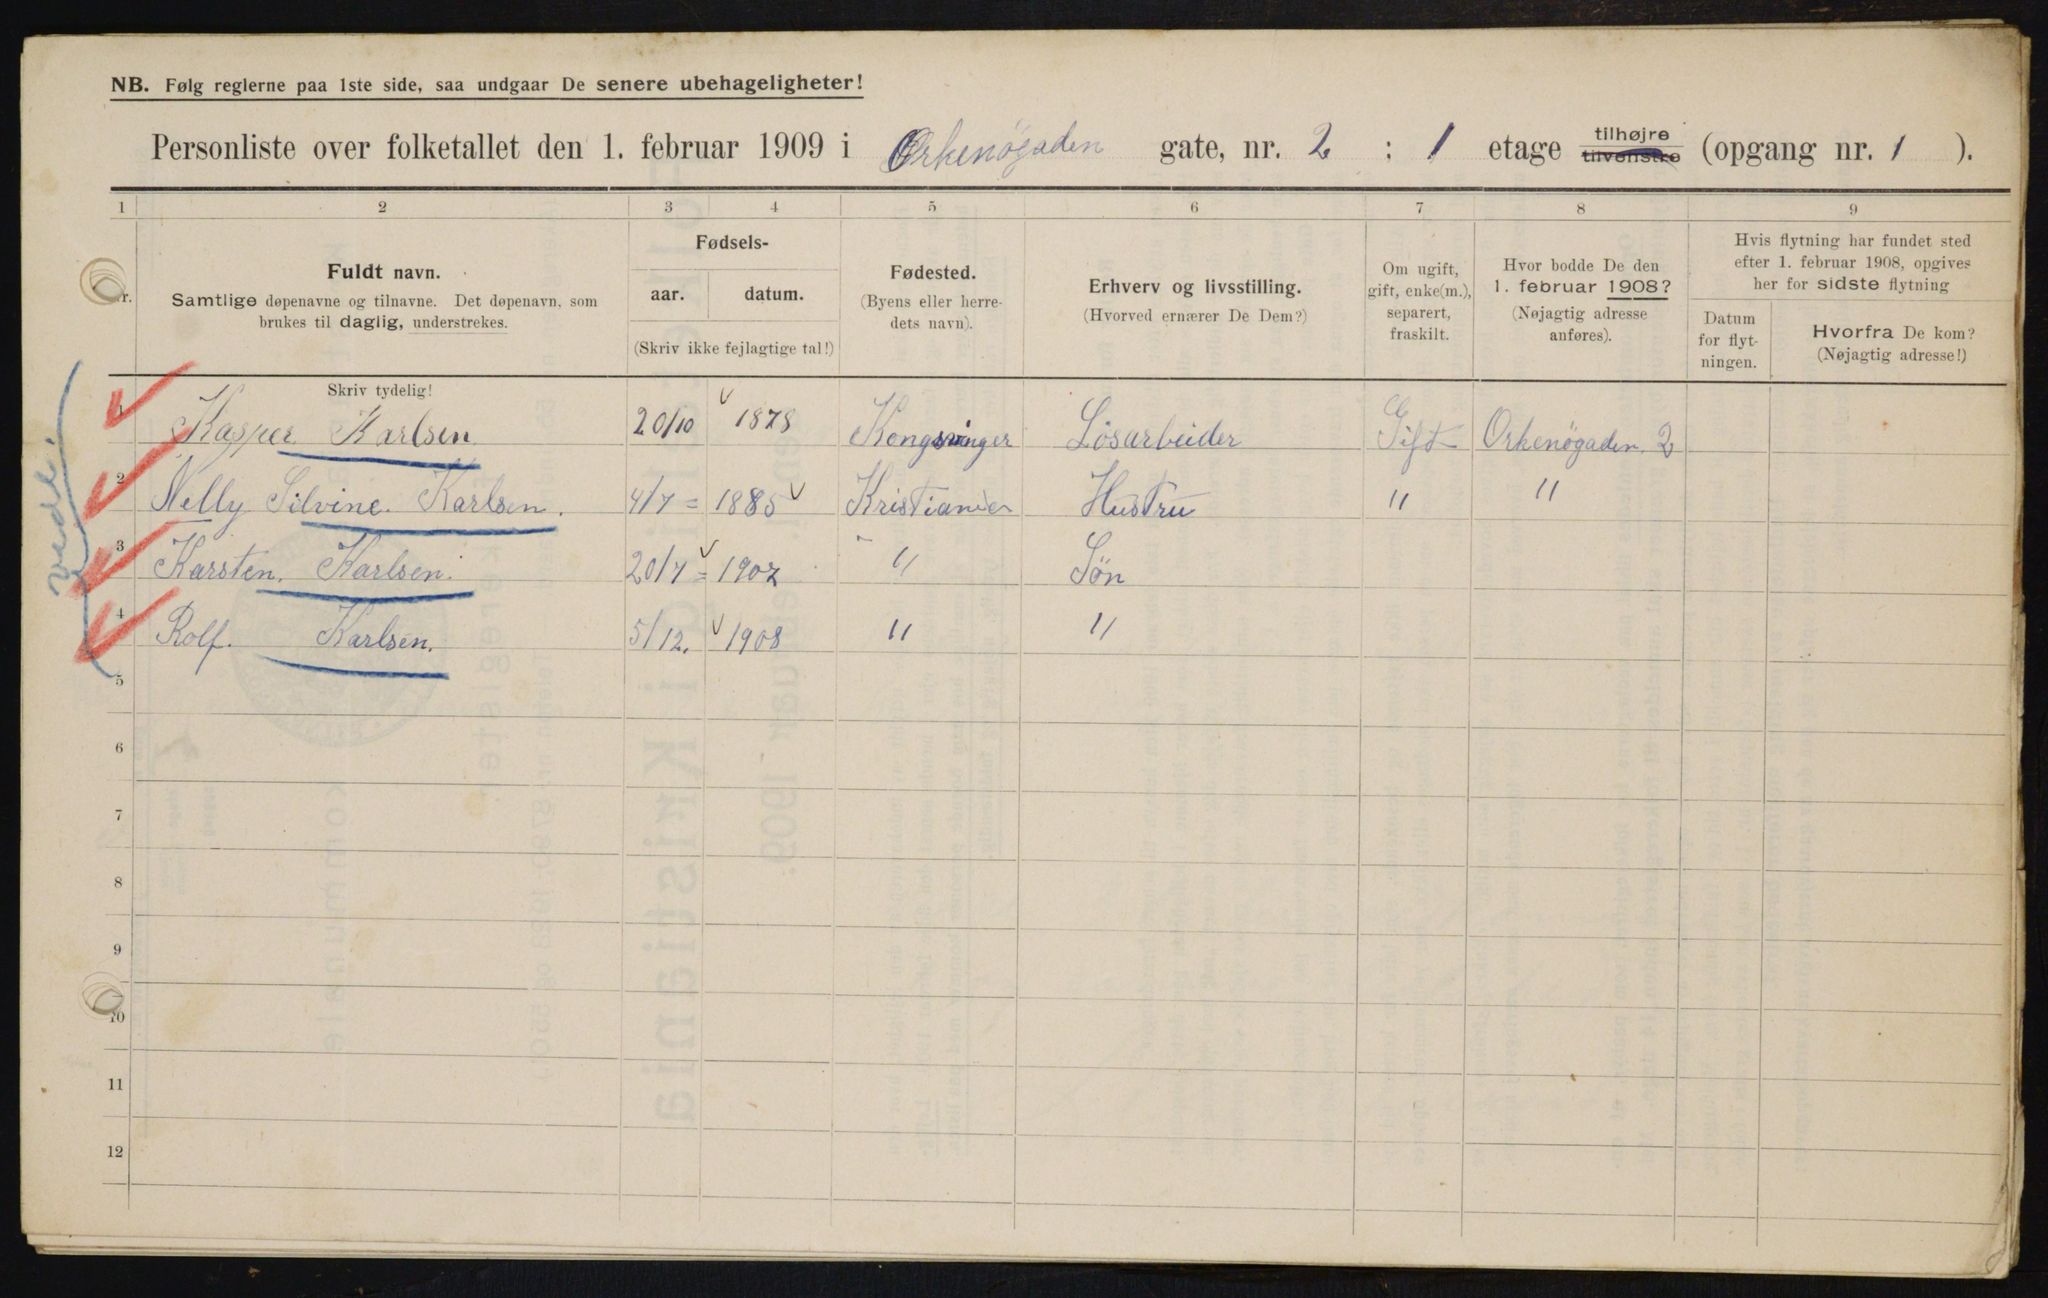 NB. Følg reglerne paa 1ste side, saa undgaar De senere ubehageligheter!
Personliste over folketallet den 1. februar 1909 i Orkenögaden gate, nr. 2 ; 1 etage tilhøjre tilvenstre (opgang nr. 1 ).
1 2 3 4 5 6 7 8 9
Nr.
Fuldt navn.
Samtlige døpenavne og tilnavne. Det døpenavn, som
brukes til daglig, understrekes.
Skriv tydelig!
Fødsels-
aar. datum.
(Skriv ikke fejlagtige tal!)
Fødested.
(Byens eller herre-
dets navn).
Erhverv og livsstilling.
(Hvorved ernærer De Dem?)
Om ugift,
gift, enke(m.),
separert,
fraskilt.
Hvor bodde De den
1. februar 1908?
(Nøjagtig adresse
anføres).
Hvis flytning har fundet sted
efter 1. februar 1908, opgives
her for sidste flytning
Datum
for flyt-
ningen.
Hvorfra De kom?
(Nøjagtig adresse!)
1 Kasper Karlsen 20/10 1878 Kongsvinger Lösarbeider Gift Orkenögaden 2
2 Nelly Silvine Karlsen. 4/7 = 1885 Kristiania Hustru " "
3 Karsten. Karlsen. 20/7 = 1907 " Sön
4 Rolf. Karlsen. 5/12. 1908 " "
5
6
7
8
9
10
11
12